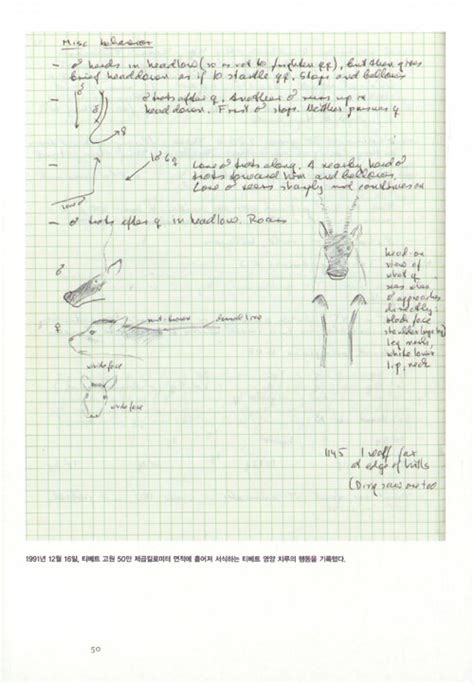 Misc behavior
— ♂ heads in headlow (so as not to frighten ♀♀), but then gives
brief headdown as if to startle ♀♀. Stops and bellows
— ♂ trots after ♀. Another ♂ runs up in
headdown. First ♂ stops. Neither pursues ♀
— Lone ♂ trots along. A nearby herd ♂
trots toward him and bellows.
Lone ♂ veers sharply and continues on
1♂ 6♀
lone ♂
— ♂ trots after ♀ in headlow. Roars
♂
♀
white face
head-on
view of
what ♀
sees when
♂ approaches
directly:
black face
leg marks,
white lower
lip, neck
1145 1 wolf fox
at edge of hills
(Ding saw one too
1991년 12월 16일, 티베트 고원 50만 제곱킬로미터 면적에 흩어져 서식하는 티베트 영양 치루의 행동을 기록했다.
50